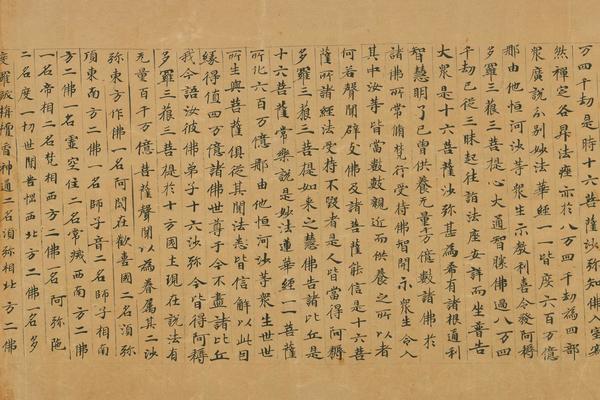 万四千劫是時十六菩薩沙弥知佛入室寂
然禪定各昇法座亦於八万四千劫為四部
眾廣說分別妙法華經一一皆度六百万億
那由他恒河沙等眾生示教利喜令發阿耨
多羅三藐三菩提心大通智勝佛過八万四
千劫已從三昧起往詣法座安詳而坐普告
大眾是十六菩薩沙弥甚為希有諸根通利
智慧明了已曾供養无量千万億數諸佛於
諸佛所常脩梵行受持佛智開示眾生令入
其中汝等皆當數數親近而供養之所以者
何若聲聞辟支佛及諸菩薩能信是十六菩
薩所說經法受持不毀者是人皆當得阿耨
多羅三藐三菩提如來之慧佛告諸比丘是
十六菩薩常樂說是妙法蓮華經一一菩薩
所化六百万億那由他恒河沙等眾生世世
所生與菩薩俱從其聞法悉皆信解以此因
緣得值四万億諸佛世尊于今不盡諸比丘
我今語汝彼佛弟子十六沙弥今皆得阿耨
多羅三藐三菩提於十方國土現在說法有
无量百千万億菩薩聲聞以為眷屬其二沙
弥東方作佛一名阿閦在歡喜國二名須弥
頂東南方二佛一名師子音二名師子相南
方二佛一名虛空住二名常滅西南方二佛
一名帝相二名梵相西方二佛一名阿弥陁
二名度一切世間苦惱西北方二佛一名多
摩羅跋栴檀香神通二名須弥相北方二佛